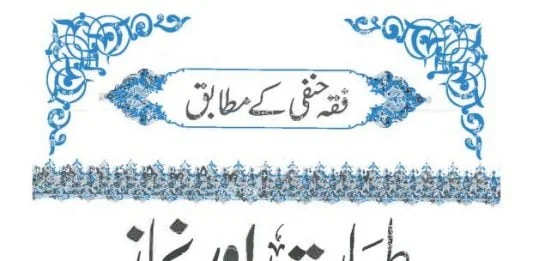 فقہ حنفی کے مطابق
طہارت اور نماز